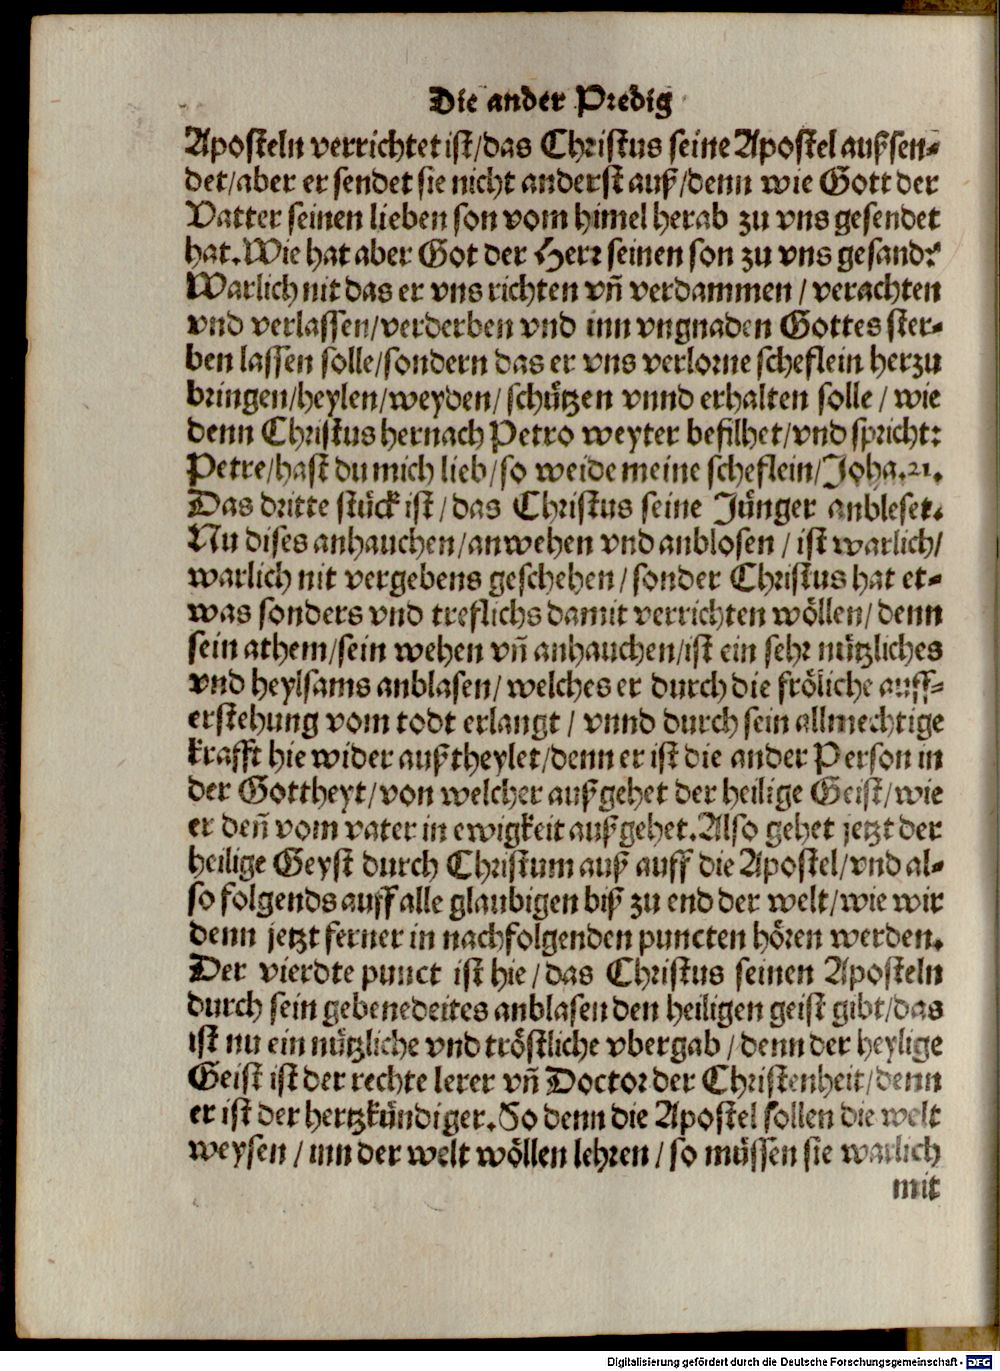 Die ander Predig
Aposteln verrichtet ist/das Christus seine Apostel außsen-
det/aber er sendet sie nicht anderst auß/denn wie Gott der
Vatter seinen lieben son vom himel herab zu vns gesendet
hat. Wie hat aber Got der Herr seinen son zu vns gesand?
Warlich nit das er vns richten vñ verdammen / verachten
vnd verlassen/verderben vnd inn vngnaden Gottes ster-
ben lassen solle/sondern das er vns verlorne scheflein herzu
bringen/heylen/weyden/ schützen vnnd erhalten solle / wie
denn Christus hernach Petro weyter befilhet/vnd spricht:
Petre/hast du mich lieb/so weide meine scheflein/Joha.21.
Das dritte stück ist / das Christus seine Jünger anbleset.
Nu dises anhauchen/anwehen vnd anblosen / ist warlich/
warlich nit vergebens geschehen / sonder Christus hat et-
was sonders vnd treflichs damit verrichten wöllen/ denn
sein athem/sein wehen vñ anhauchen/ist ein sehr nützliches
vnd heylsams anblasen/ welches er durch die fröliche auff-
erstehung vom todt erlangt / vnnd durch sein allmechtige
krafft hie wider außtheylet/denn er ist die ander Person in
der Gottheyt/von welcher außgehet der heilige Geist/wie
er deñ vom vater in ewigkeit außgehet. Also gehet jetzt der
heilige Geyst durch Christum auß auff die Apostel/vnd al-
so folgends auff alle glaubigen biß zu end der welt/wie wir
denn jetzt ferner in nachfolgenden puncten hören werden.
Der vierdte punct ist hie / das Christus seinen Aposteln
durch sein gebenedeites anblasen den heiligen geist gibt/das
ist nu ein nützliche vnd tröstliche vbergab / denn der heylige
Geist ist der rechte lerer vñ Doctor der Christenheit/denn
er ist der hertzkündiger. So denn die Apostel sollen die welt
weysen / inn der welt wöllen lehren / so müssen sie warlich
mit
Digitalisierung gefördert durch die Deutsche Forschungsgemeinschaft - DFG